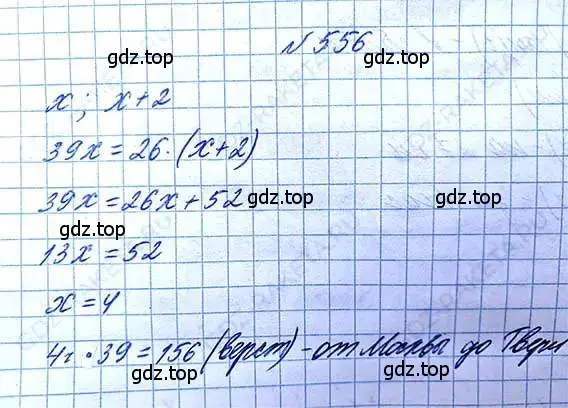 № 556
gdz.top
gdz.top
x; x+2
39x = 26·(x+2)
gdz.top
gdz.top
39x = 26x + 52
gdz.top
gdz.top
13x = 52
x = 4
gdz.top
gdz.top
4·39 = 156 (верст) - от Москвы до Твери
gdz.top
gdz.top